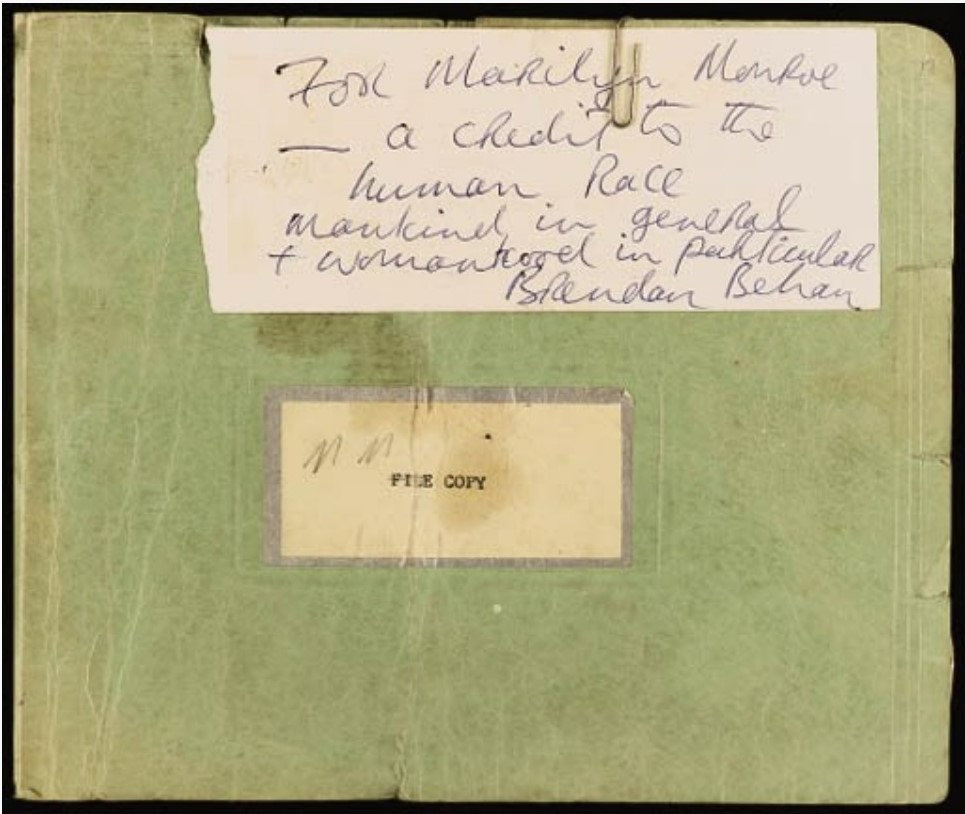 For Marilyn Monroe
— a credit to the
human Race
mankind in general
+ womanhood in particular
Brendan Behan
M M
FILE COPY